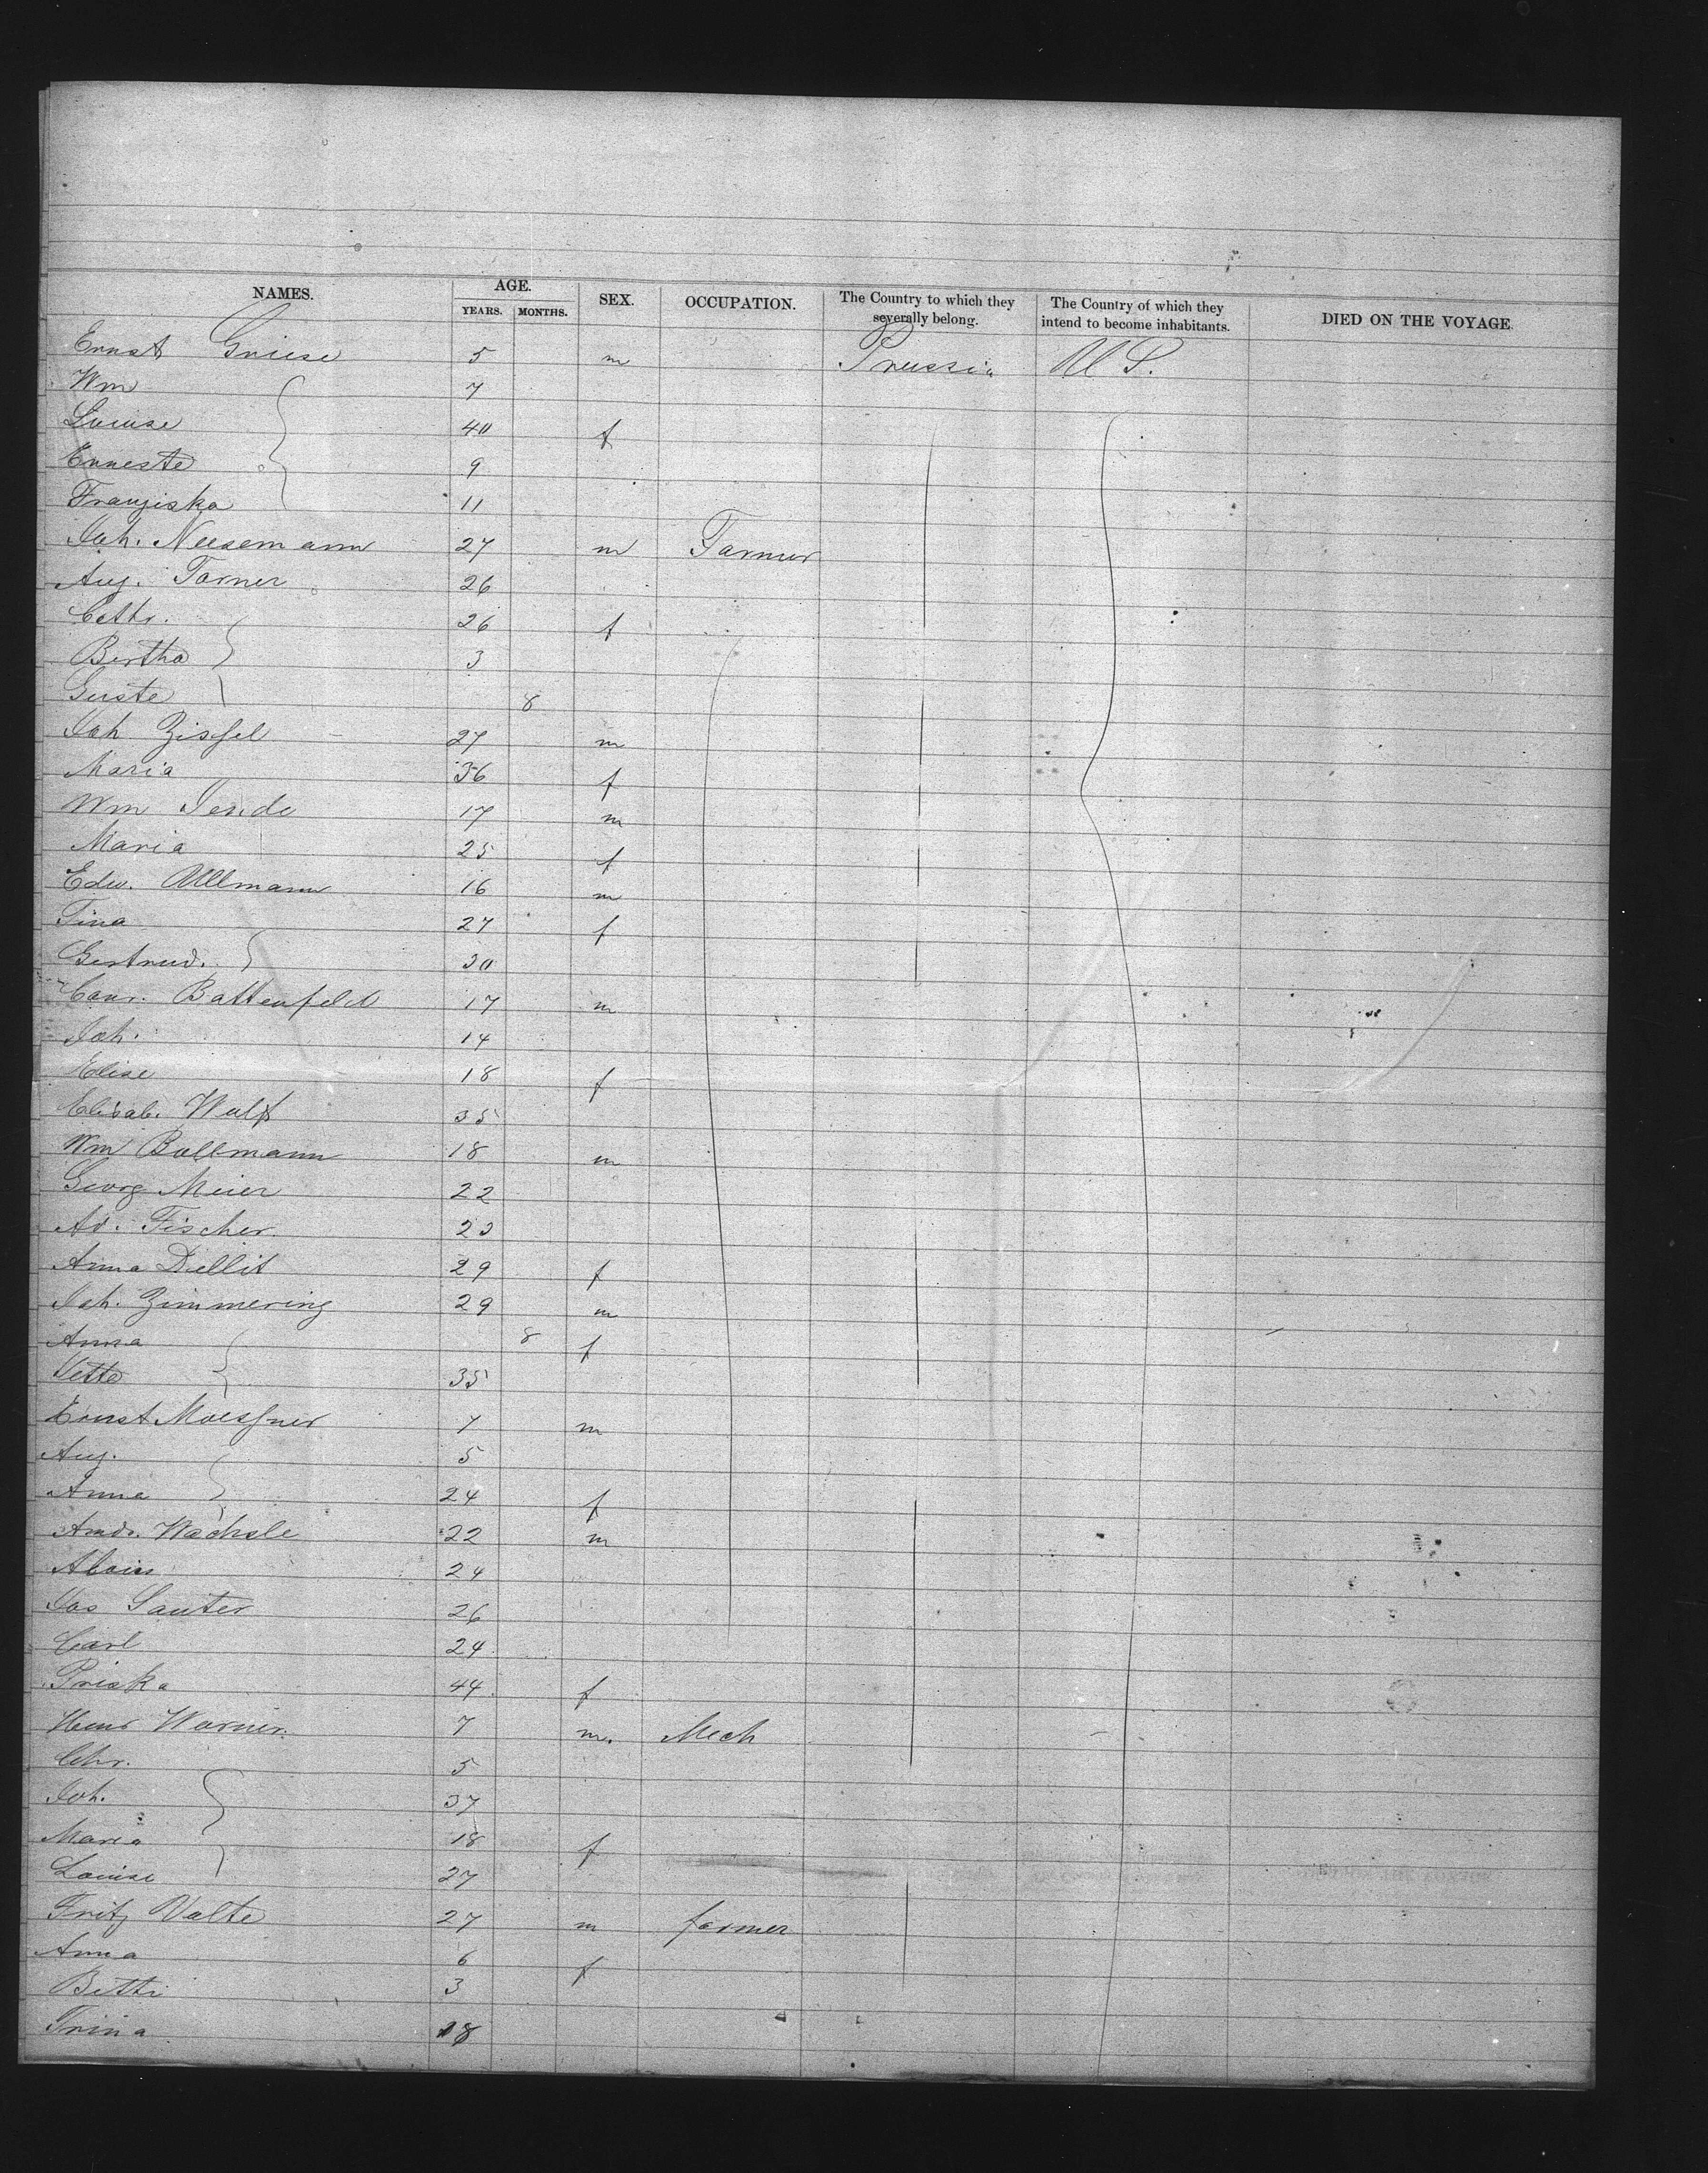 NAMES. AGE. SEX. OCCUPATION. The Country to which they severally belong. The Country of which they intend to become inhabitants. DIED ON THE VOYAGE.
YEARS. MONTHS.
Ernst Griese 5 m Prussia U S.
Wm 7
Louise 40 f
Erneste 9
Franziska 11
Joh. Neesemann 27 m Farmer
Aug. Torner 26
Cath. 26 f
Bertha 3
Guste 8
Joh Zissel 27 m
Maria 36 f
Wm Jende 17 m
Maria 25 f
Edw. Ullmann 16 m
Tina 27 f
Gertrud. 30
Conr. Battenfeld 17 m
Joh. 14
Elise 18 f
Elisab. Wulf 35
Wm Bollmann 18 m
Georg Meier 22
Ad. Fischer. 23
Anna Dellit 29 f
Joh. Zimmering 29 m
Anna 8 f
Jette 35
Ernst Moessner 7 m
Aug. 5
Anna 24 f
Andr. Wachsle 22 m
Alois 24
Jos Sauter 26
Carl 24
Priska 44 f
Henr Werner. 7 m. Mech
Chr. 5
Joh. 37
Maria 18 f
Louise 27
Fritz Valte 27 m farmer
Anna 6 f
Betti 3
Trina 18